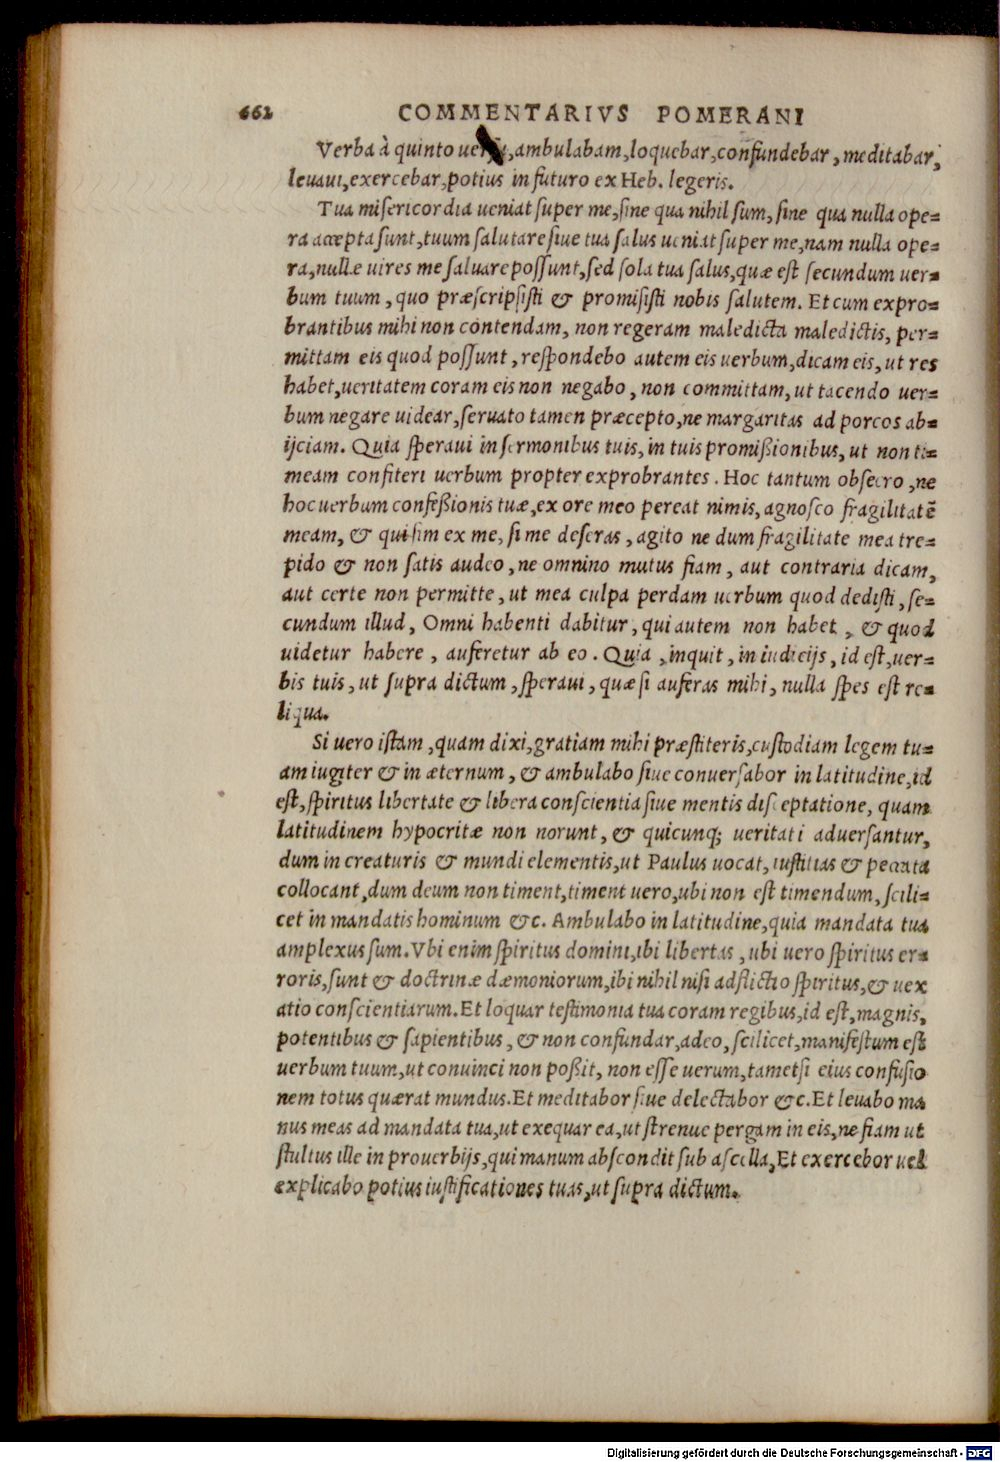 662 COMMENTARIVS POMERANI
Verba à quinto uersu, ambulabam, loquebar, confundebar, meditabar,
leuaui, exercebar, potius in futuro ex Heb. legeris.
Tua misericordia ueniat super me, sine qua nihil sum, sine qua nulla ope=
ra accepta sunt, tuum salutare siue tua salus ueniat super me, nam nulla ope=
ra, nullæ uires me saluare possunt, sed sola tua salus, quæ est secundum uer=
bum tuum, quo præscripsisti & promisisti nobis salutem. Et cum expro=
brantibus mihi non contendam, non regeram maledicta maledictis, per=
mittam eis quod possunt, respondebo autem eis uerbum, dicam eis, ut res
habet, ueritatem coram eis non negabo, non committam, ut tacendo uer=
bum negare uidear, seruato tamen præcepto, ne margaritas ad porcos ab=
ijciam. Quia speraui in sermonibus tuis, in tuis promißionibus, ut non ti=
meam confiteri uerbum propter exprobrantes. Hoc tantum obsecro, ne
hoc uerbum confeßionis tuæ, ex ore meo pereat nimis, agnosco fragilitatē
meam, & qui sim ex me, si me deseras, agito ne dum fragilitate mea tre=
pido & non satis audeo, ne omnino mutus fiam, aut contraria dicam,
aut certe non permitte, ut mea culpa perdam uerbum quod dedisti, se=
cundum illud, Omni habenti dabitur, qui autem non habet, & quod
uidetur habere, auferetur ab eo. Quia, inquit, in iudicijs, id est, uer=
bis tuis, ut supra dictum, speraui, quæ si auferas mihi, nulla spes est re=
liqua.
Si uero istam, quam dixi, gratiam mihi præstiteris, custodiam legem tu=
am iugiter & in æternum, & ambulabo siue conuersabor in latitudine, id
est, spiritus libertate & libera conscientia siue mentis disceptatione, quam
latitudinem hypocritæ non norunt, & quicunq; ueritati aduersantur,
dum in creaturis & mundi elementis, ut Paulus uocat, iustitias & peccata
collocant, dum deum non timent, timent uero, ubi non est timendum, scili=
cet in mandatis hominum &c. Ambulabo in latitudine, quia mandata tua
amplexus sum. Vbi enim spiritus domini, ibi libertas, ubi uero spiritus er=
roris, sunt & doctrinæ dæmoniorum, ibi nihil nisi adflictio spiritus, & uex
atio conscientiarum. Et loquar testimonia tua coram regibus, id est, magnis,
potentibus & sapientibus, & non confundar, adeo, scilicet, manifestum est
uerbum tuum, ut conuinci non poßit, non esse uerum, tametsi eius confusio
nem totus quærat mundus. Et meditabor siue delectabor &c. Et leuabo ma
nus meas ad mandata tua, ut exequar ea, ut strenue pergam in eis, ne fiam ut
stultus ille in prouerbijs, qui manum abscondit sub ascella, Et exercebor uel
explicabo potius iustificationes tuas, ut supra dictum.
Digitalisierung gefördert durch die Deutsche Forschungsgemeinschaft - DFG